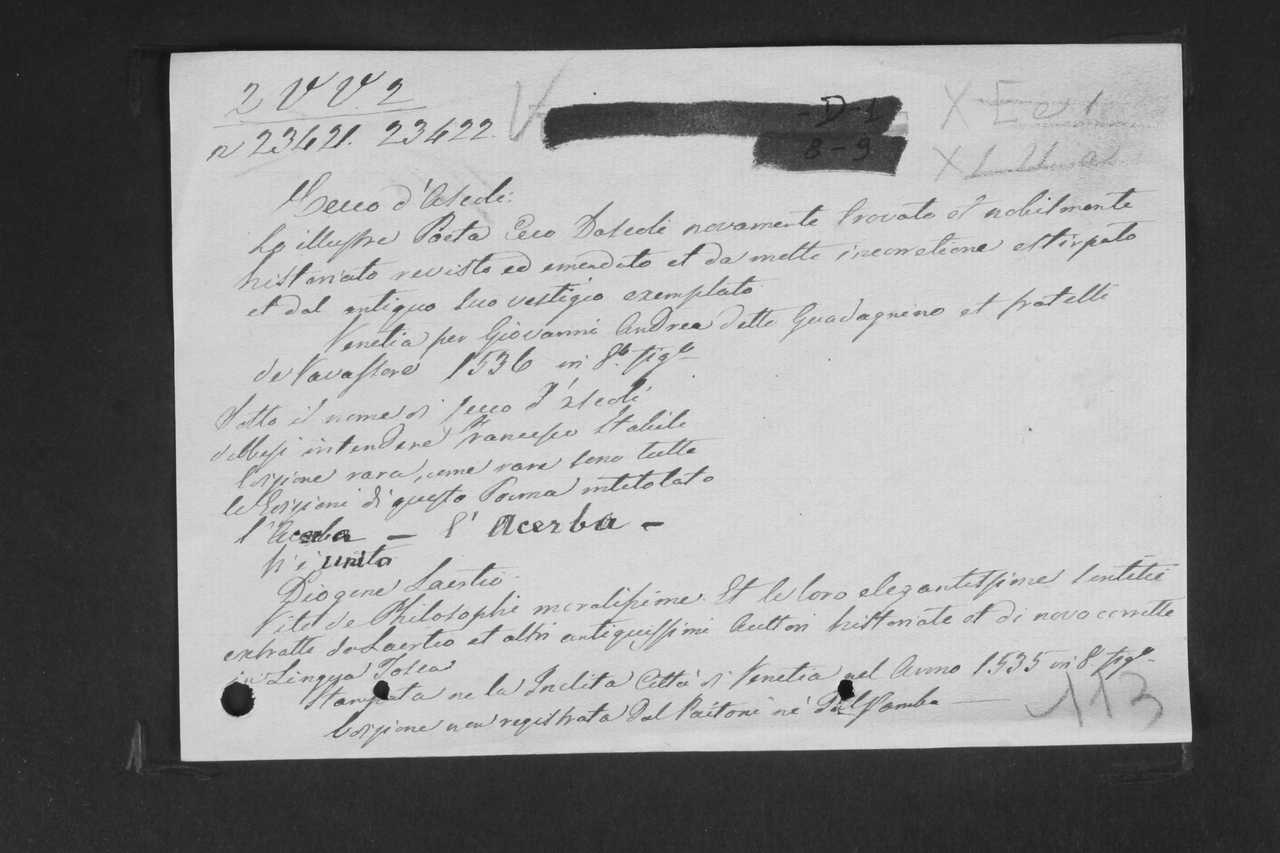 2 V V. 2
n 23421. 23422.
- D-1
8-9
X
X
Cecco d'Ascoli:
Lo illustre Poeta Ceco Dascoli novamente trovato et nobilmente
historiato revisto ed emendato et da molte incorretione estirpato
et dal antiquo suo vestigio exemplato
Venetia per Giovanni Andrea detto Guadagnino et fratelli
de Vavassore 1536 in 8.º figº
Sotto il nome di Cecco d'Ascoli
devesi intendere Francesco Stabile
Edizione rara, come rare sono tutte
le Edizioni di questo Poema intitolato
l'Acerba — l'Acerba —
Vi è unito
Diogene Laertio.
Vite de Philosophi moralissime. Et le loro elegantissime sententie
extratte da Laertio et altri antiquissimi Auttori historiate et di novo corrette
in Lingua Tosca
Stampata ne la Inclita Città di Venetia nel Anno 1535 in 8º figº.
Edizione non registrata dal Paitoni nè dal Gamba —
113